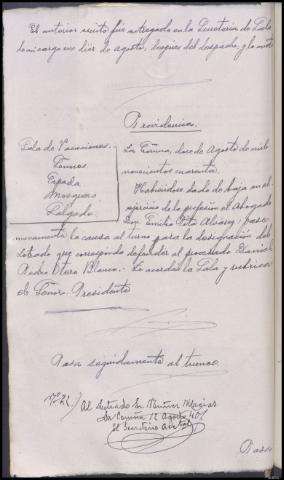 El anterior escrito fué entregado en la Secretaria de Sala
de mi cargo en diez de Agosto, despues del despacho, y la noté
Providencia.
Sala de Vacaciones.
Tormes
Espada
Mosquera
Salgado.
La Coruña, doce de Agosto de mil
novecientos cuarenta.
Habiendose dado de baja en el
ejercicio de la profesion el Abogado
Don Emilio Pita, pase
nuevamente la causa al turno para la designación del
Letrado que corresponda defender al procesado Daniel
Andrés Otero Blanco. Lo acordó la Sala y rubrica
el Señor Presidente
Pasa seguidamente al turno.
Al Letrado Sr. Muñoz
La Coruña 12 Agosto 40
El Secretario